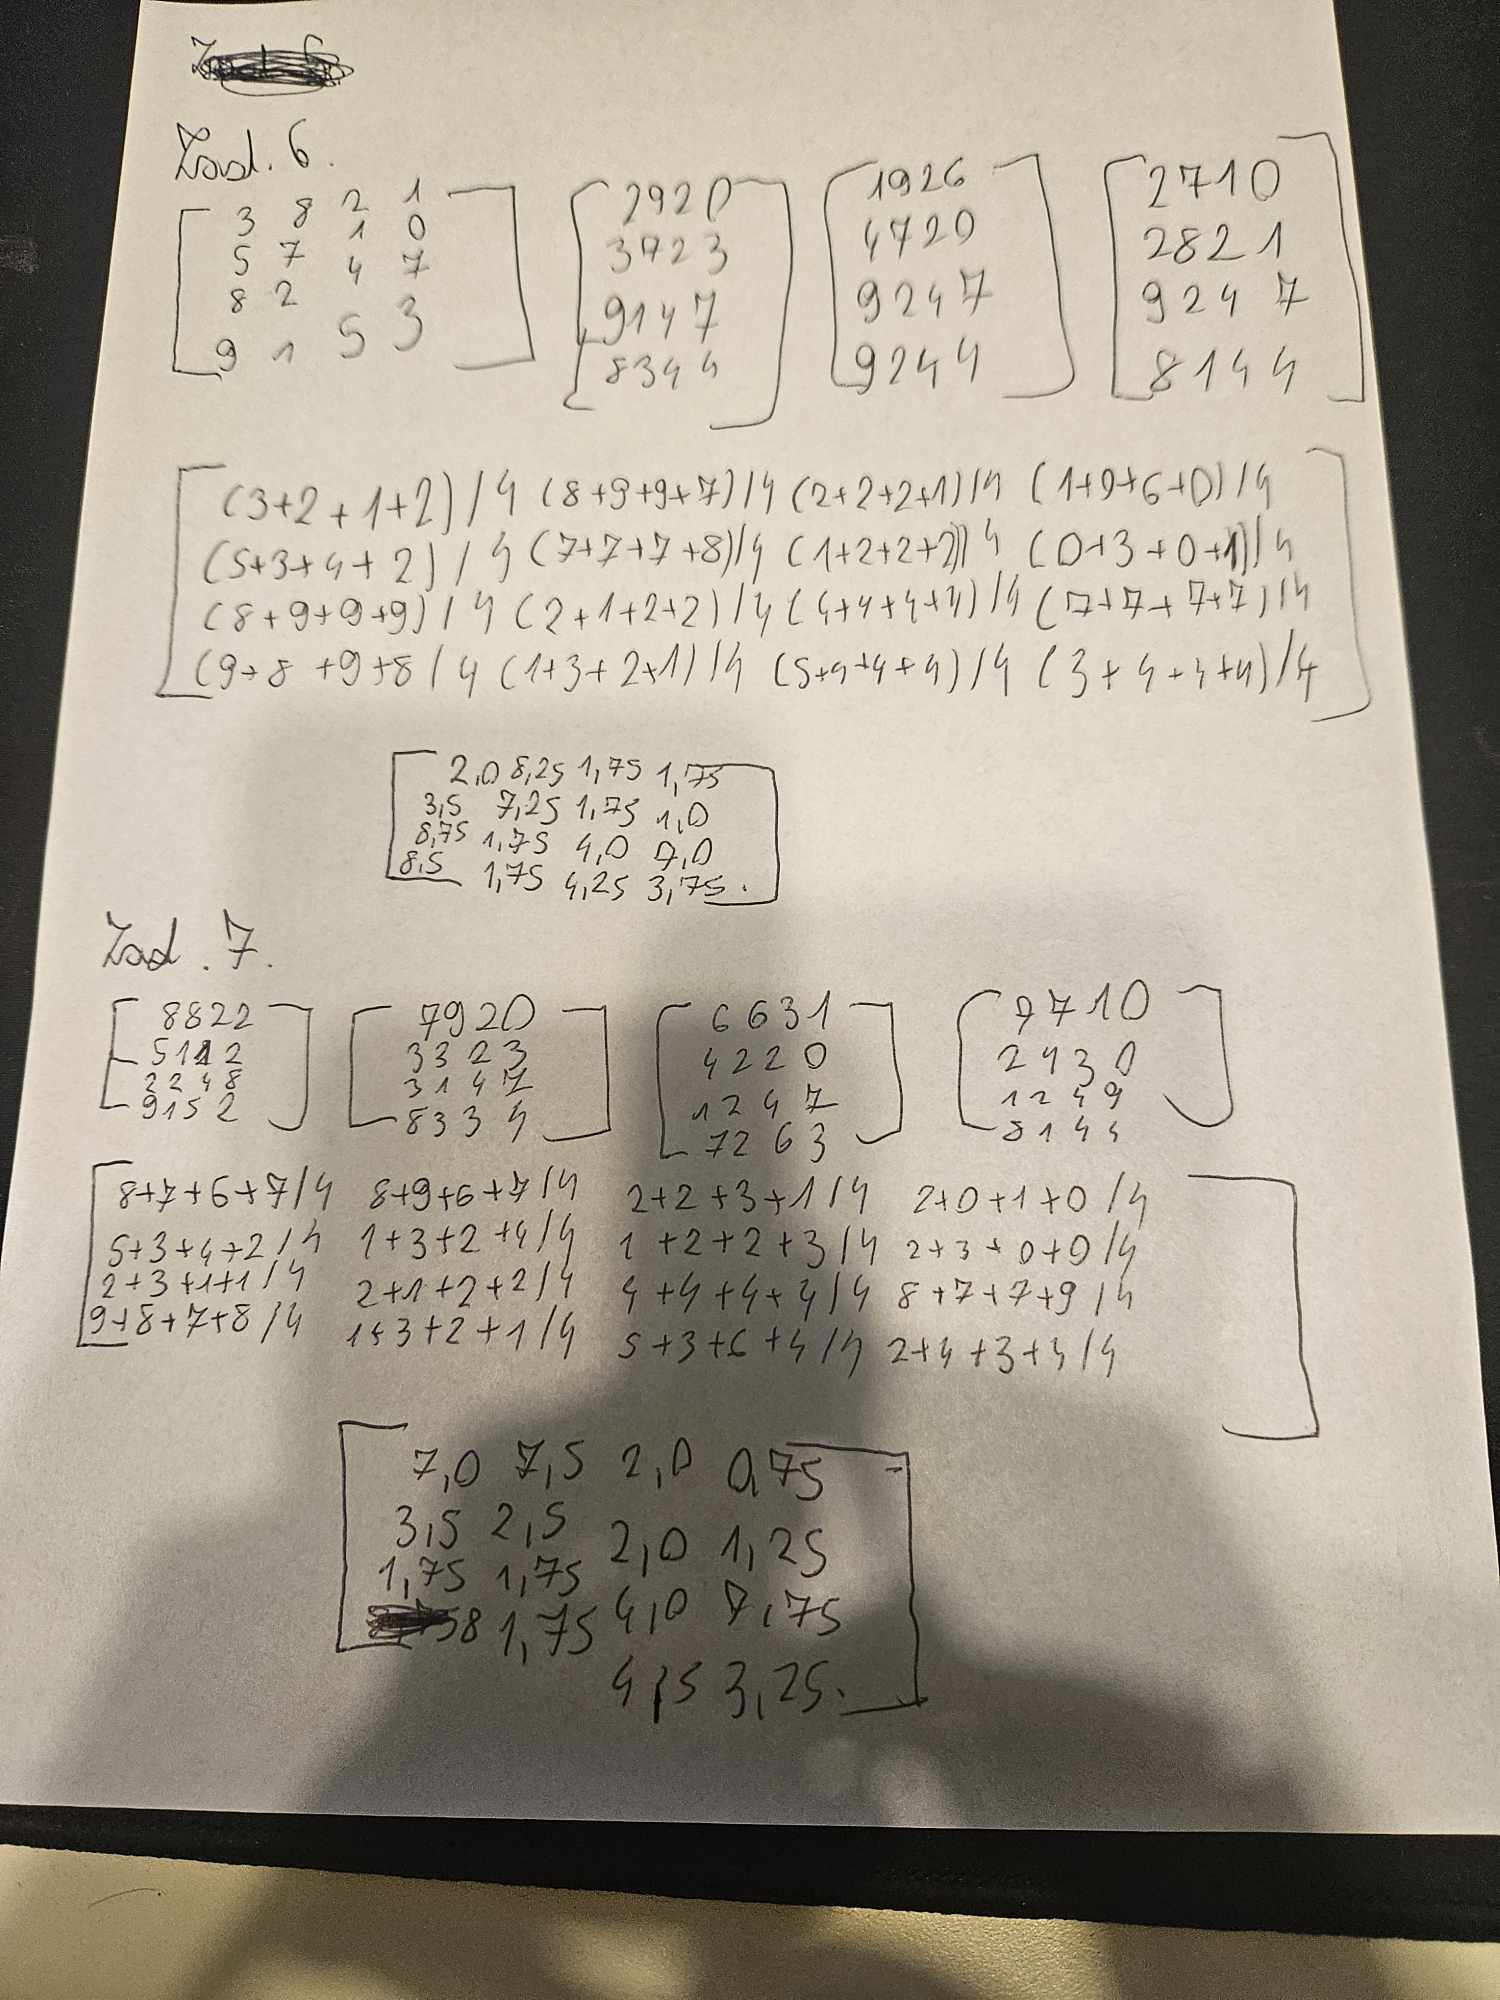 Zad. 6.
3 8 2 1
5 7 1 0
8 2 4 7
9 1 5 3
2920
3723
9147
8344
1926
4720
9247
9244
2710
2821
9247
8144
(3+2+1+2)/4 (8+9+9+7)/4 (2+2+2+1)/4 (1+0+6+0)/4
(5+3+4+2)/4 (7+7+7+8)/4 (1+2+2+2)/4 (0+3+0+1)/4
(8+9+9+9)/4 (2+1+2+2)/4 (4+4+4+4)/4 (7+7+7+7)/4
(9+8+9+8/4 (1+3+2+1)/4 (5+4+4+4)/4 (3+4+4+4)/4
2,0 8,25 1,75 1,75
3,5 7,25 1,75 1,0
8,75 1,75 4,0 7,0
8,5 1,75 4,25 3,75.
Zad. 7.
8822
5112
2248
9152
7920
3323
3147
8334
6631
4220
1247
7263
7710
2430
1249
8144
8+7+6+7/4 8+9+6+7/4 2+2+3+1/4 2+0+1+0/4
5+3+4+2/4 1+3+2+4/4 1+2+2+3/4 2+3+0+0/4
2+3+1+1/4 2+1+2+2/4 4+4+4+4/4 8+7+7+9/4
9+8+7+8/4 1+3+2+1/4 5+3+6+4/4 2+4+3+4/4
7,0 7,5 2,0 0,75
3,5 2,5 2,0 1,25
1,75 1,75 4,0 7,75
8 1,75 4,5 3,25.